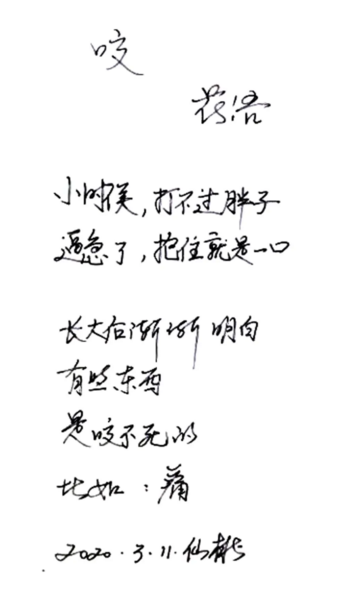 咬
小时候，打不过胖子
逼急了，抱住就是一口
长大后渐渐明白
有些东西
是咬不死的
比如：痛
2020.3.11.仙